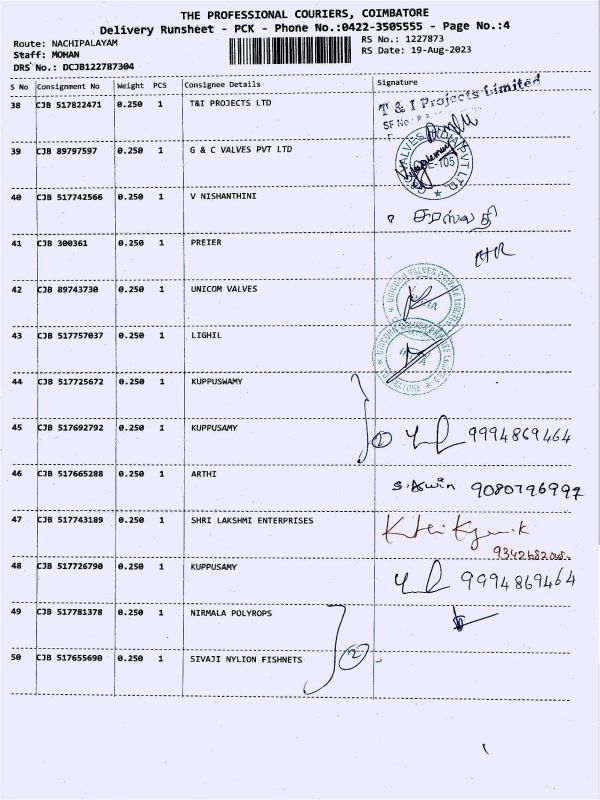 THE PROFESSIONAL COURIERS, COIMBATORE
Delivery Runsheet - PCK - Phone No.:0422-3505555 - Page No.:4
Route: NACHIPALAYAM
RS No.: 1227873
Staff: MOHAN
RS Date: 19-Aug-2023
DRS No.: DCJB122787304
S No Consignment No Weight PCS Consignee Details Signature
38 CJB 517822471 0.250 1 T&I PROJECTS LTD
T & I Projects Limited
SF No
39 CJB 89797597 0.250 1 G & C VALVES PVT LTD
40 CJB 517742566 0.250 1 V NISHANTHINI
சரஸ்வதி
41 CJB 300361 0.250 1 PREIER
42 CJB 89743730 0.250 1 UNICOM VALVES
43 CJB 517757037 0.250 1 LIGHIL
44 CJB 517725672 0.250 1 KUPPUSWAMY
45 CJB 517692792 0.250 1 KUPPUSAMY
2 9994869464
46 CJB 517665288 0.250 1 ARTHI
S. Aswin 9080796997
47 CJB 517743189 0.250 1 SHRI LAKSHMI ENTERPRISES
48 CJB 517726790 0.250 1 KUPPUSAMY
9994869464
49 CJB 517781378 0.250 1 NIRMALA POLYROPS
50 CJB 517655690 0.250 1 SIVAJI NYLION FISHNETS
2